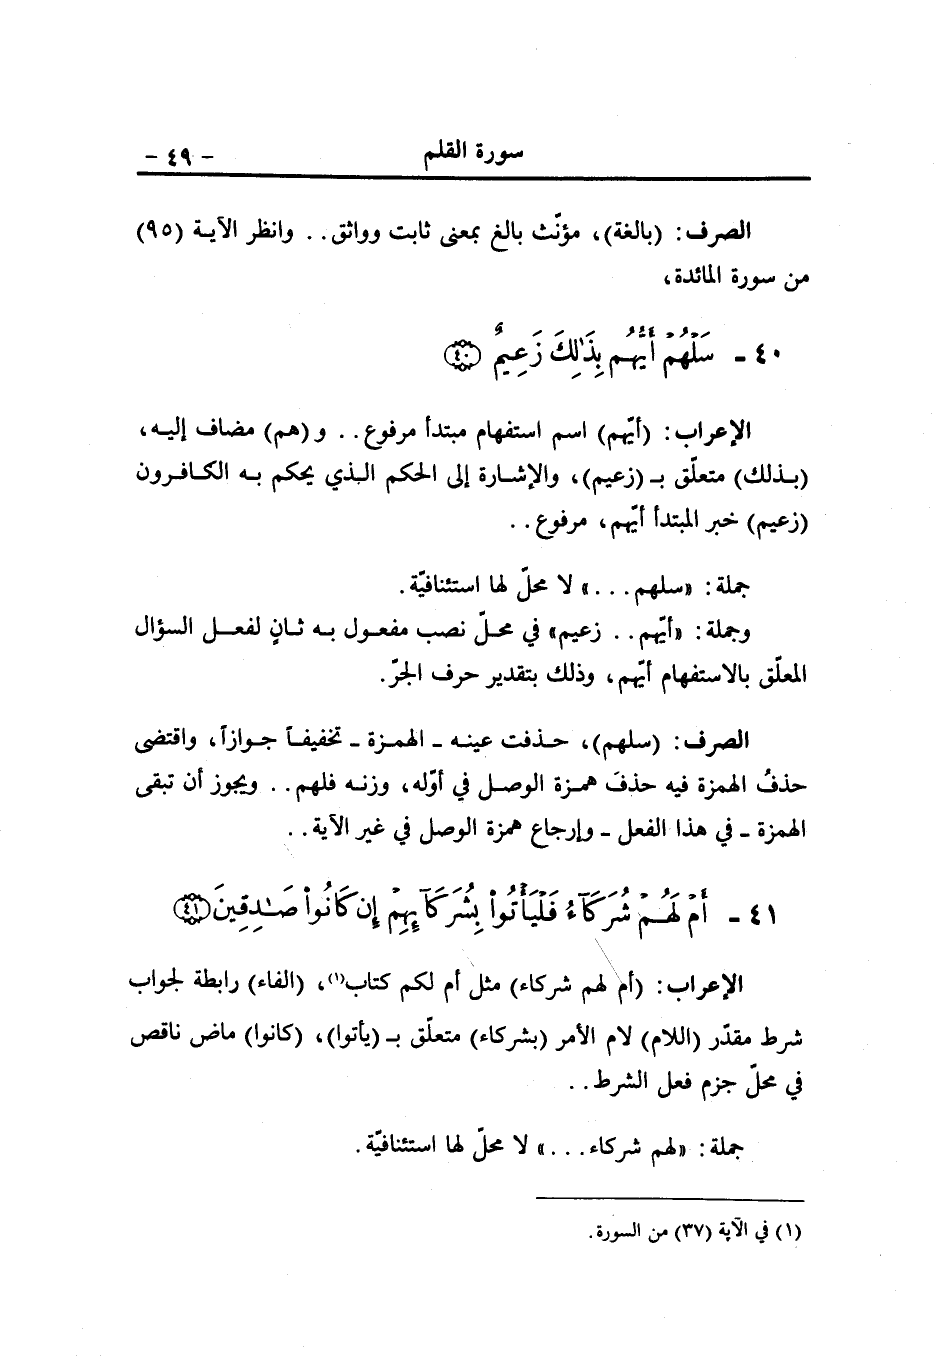 سورة القلم - ٤٩ -
الصرف: (بالغة)، مؤنّث بالغ بمعنى ثابت وواثق.. وانظر الآية (٩٥)
من سورة المائدة،
٤٠ - سَلْهُمْ أَيُّهُم بِذَٰلِكَ زَعِيمٌ ﴿٤٠﴾
الإعراب: (أيّهم) اسم استفهام مبتدأ مرفوع.. و(هم) مضاف إليه،
(بذلك) متعلّق بـ (زعيم)، والإشارة إلى الحكم الذي يحكم به الكافرون
(زعيم) خبر المبتدأ أيّهم، مرفوع..
جملة: «سلهم...» لا محلّ لها استئنافيّة.
وجملة: «أيّهم.. زعيم» في محلّ نصب مفعول به ثانٍ لفعل السؤال
المعلّق بالاستفهام أيّهم، وذلك بتقدير حرف الجرّ.
الصرف: (سلهم)، حذفت عينه ـ الهمزة ـ تخفيفاً جوازاً، واقتضى
حذفُ الهمزة فيه حذفَ همزة الوصل في أوّله، وزنه فلهم.. ويجوز أن تبقى
الهمزة ـ في هذا الفعل ـ وإرجاع همزة الوصل في غير الآية..
٤١ - أَمْ لَهُمْ شُرَكَآءُ فَلْيَأْتُوا۟ بِشُرَكَآئِهِمْ إِن كَانُوا۟ صَٰدِقِينَ ﴿٤١﴾
الإعراب: (أم لهم شركاء) مثل أم لكم كتاب(١)، (الفاء) رابطة لجواب
شرط مقدّر (اللام) لام الأمر (بشركاء) متعلّق بـ (يأتوا)، (كانوا) ماض ناقص
في محلّ جزم فعل الشرط..
جملة: «لهم شركاء...» لا محلّ لها استئنافيّة.
(١) في الآية (٣٧) من السورة.